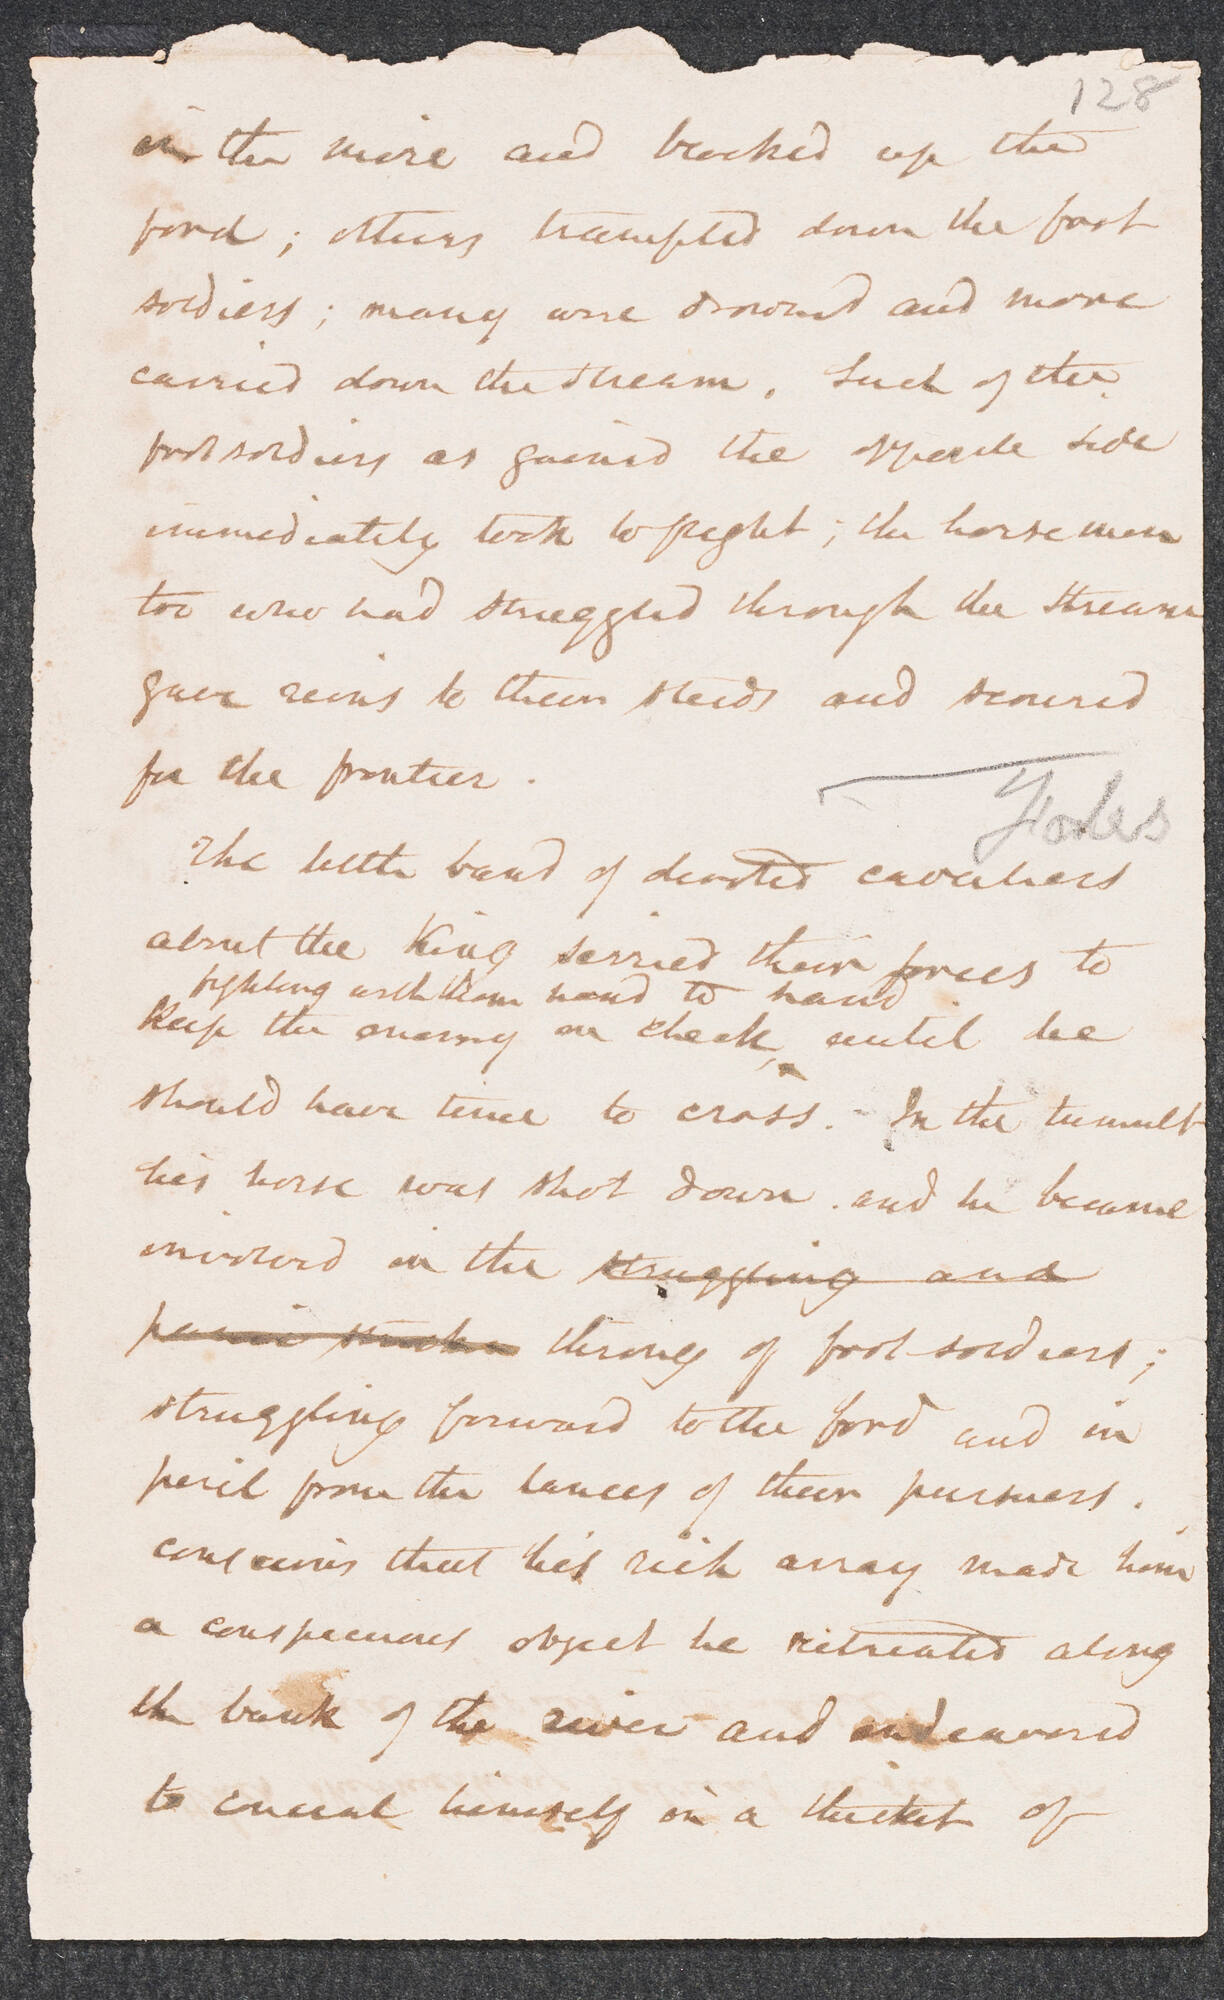 128
in the mire and blocked up the
ford; others trampled down the foot
soldiers; many were drownd and more
carried down the stream. Such of the
foot soldiers as gained the opposite side
immediately took to flight; the horsemen
too who had struggled through the stream
gave reins to their steeds and scoured
for the frontier.
The little band of devoted cavaliers
about the King serried their forces to
fighting with them hand to hand
keep the enemy in check, ^ until he
should have time to cross. - In the tumult
his horse was shot down. and he became
involved in the struggling and
panic stricken throng of foot-soldiers;
struggling forward to the ford and in
peril from the lances of their pursuers.
conscious that his rich array made him
a conspicuous object he retreated along
the bank of the river and endeavored
to conceal himself in a thicket of